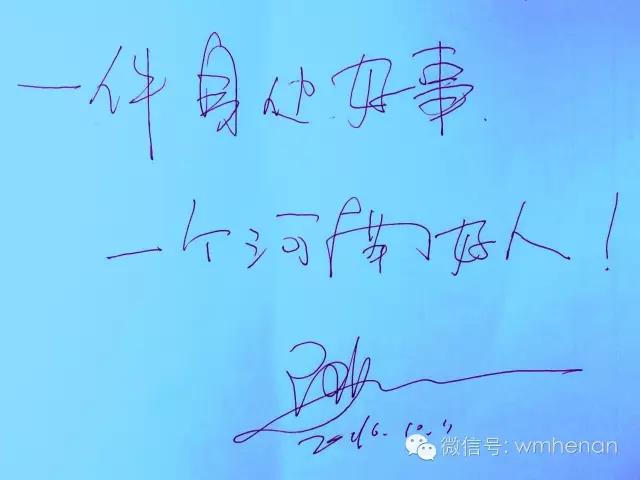 一件身边好事
一个河南好人！
2016.10.
微信号: wmhenan